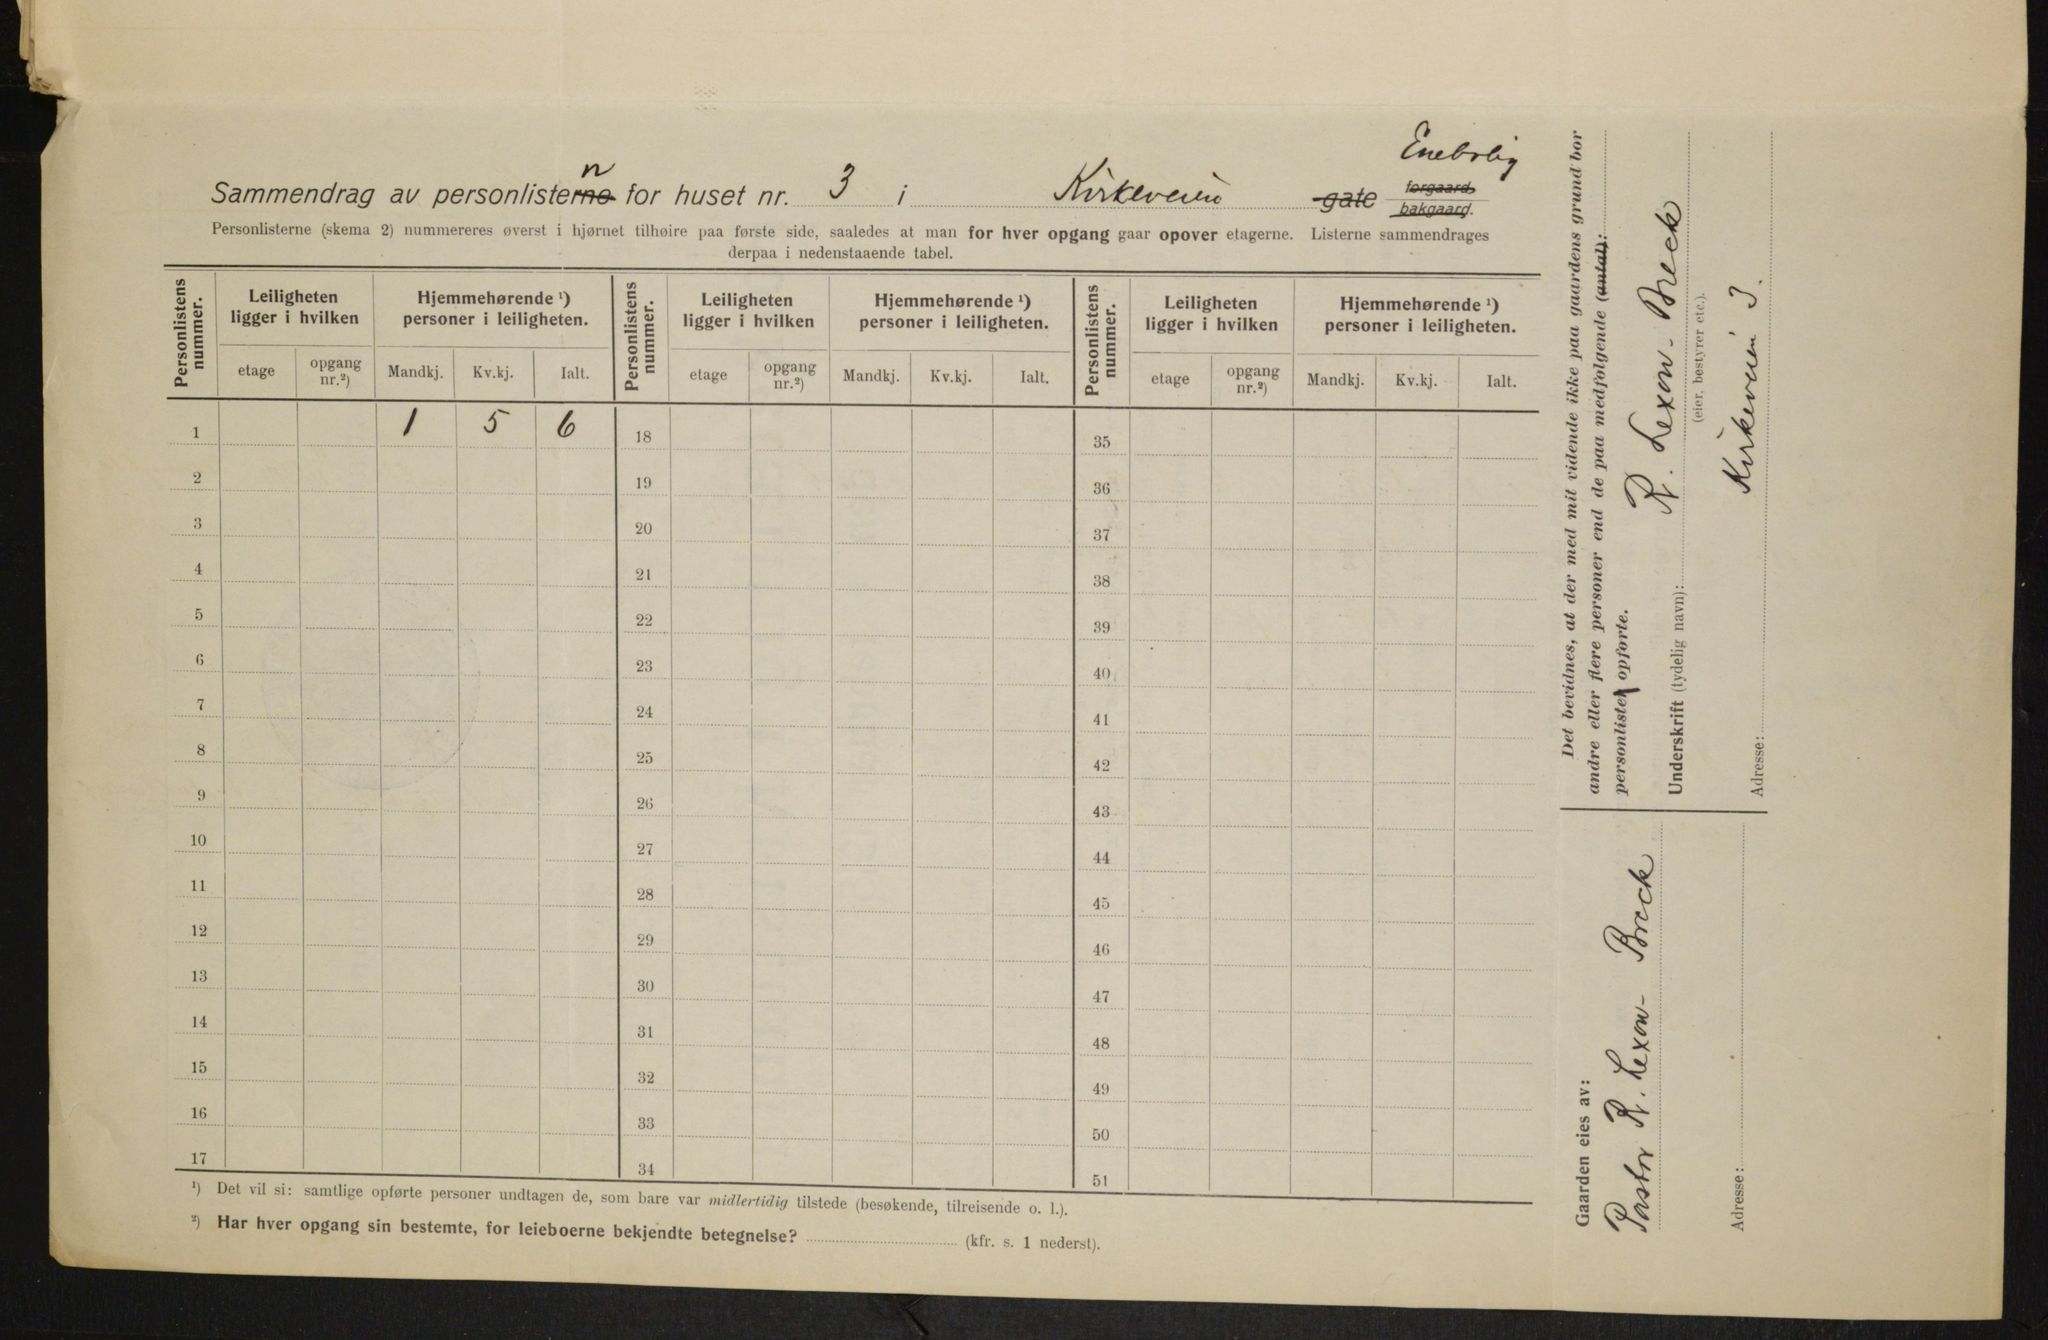 Enebolig
Sammendrag av personlisterne n for huset nr. 3 i Kirkeveien gate forgaard. bakgaard.
Personlisterne (skema 2) nummereres øverst i hjørnet tilhøire paa første side, saaledes at man for hver opgang gaar opover etagerne. Listerne sammendrages
derpaa i nedenstaaende tabel.
Personlistens nummer. Leiligheten ligger i hvilken Hjemmehørende ¹) personer i leiligheten. Personlistens nummer. Leiligheten ligger i hvilken Hjemmehørende ¹) personer i leiligheten. Personlistens nummer. Leiligheten ligger i hvilken Hjemmehørende ¹) personer i leiligheten.
etage opgang nr.²) Mandkj. Kv.kj. Ialt. etage opgang nr.²) Mandkj. Kv.kj. Ialt. etage opgang nr.²) Mandkj. Kv.kj. Ialt.
1 1 5 6 18 35
2 19 36
3 20 37
4 21 38
5 22 39
6 23 40
7 24 41
8 25 42
9 26 43
10 27 44
11 28 45
12 29 46
13 30 47
14 31 48
15 32 49
16 33 50
17 34 51
¹) Det vil si: samtlige opførte personer undtagen de, som bare var midlertidig tilstede (besøkende, tilreisende o. l.).
²) Har hver opgang sin bestemte, for leieboerne bekjendte betegnelse? (kfr. s. 1 nederst).
Det bevidnes, at der med mit vidende ikke paa gaardens grund bor
andre eller flere personer end de paa medfølgende (antal):
personlister opførte.
R. Lexow-Breck
Underskrift (tydelig navn):
(eier, bestyrer etc.).
Kirkeveien 3.
Adresse:
Gaarden eies av:
Pastor R. Lexow-Breck
Adresse: